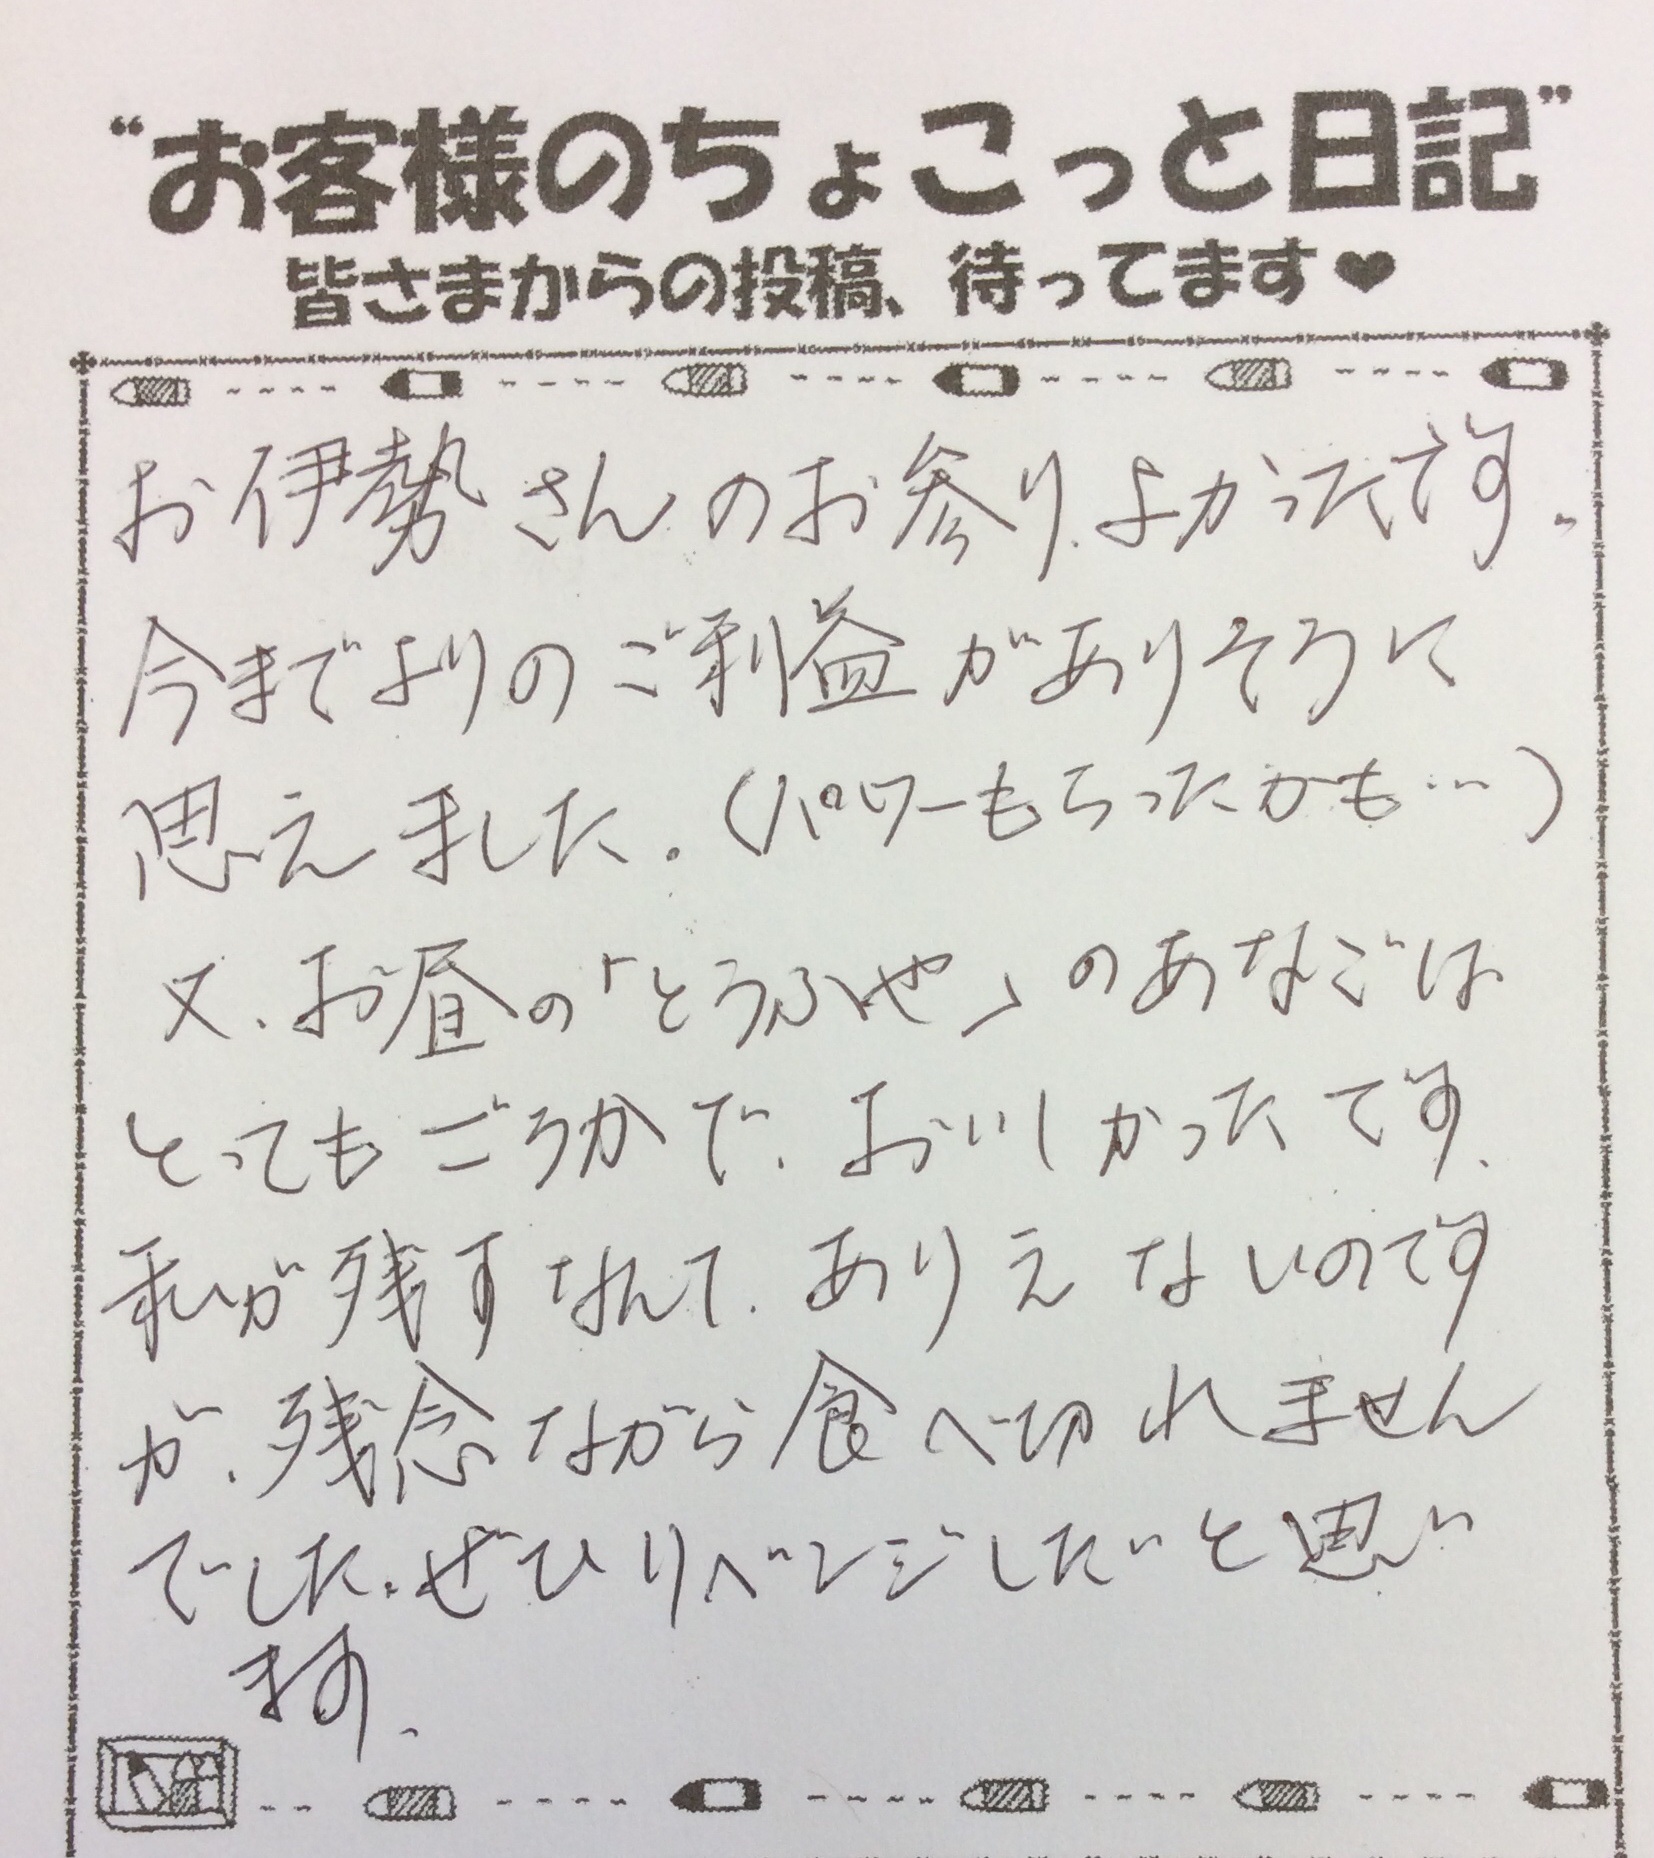 “お客様のちょこっと日記”
皆さまからの投稿、待ってます♥
お伊勢さんのお参り、よかったです。
今までよりのご利益がありそうに
思えました。(パワーもらったかも…)
又、お昼の「とうふや」のあなごは
とってもごうかで、おいしかったです。
私が残すなんて、ありえないのです
が、残念ながら食べ切れません
でした。ぜひリベンジしたいと思い
ます。